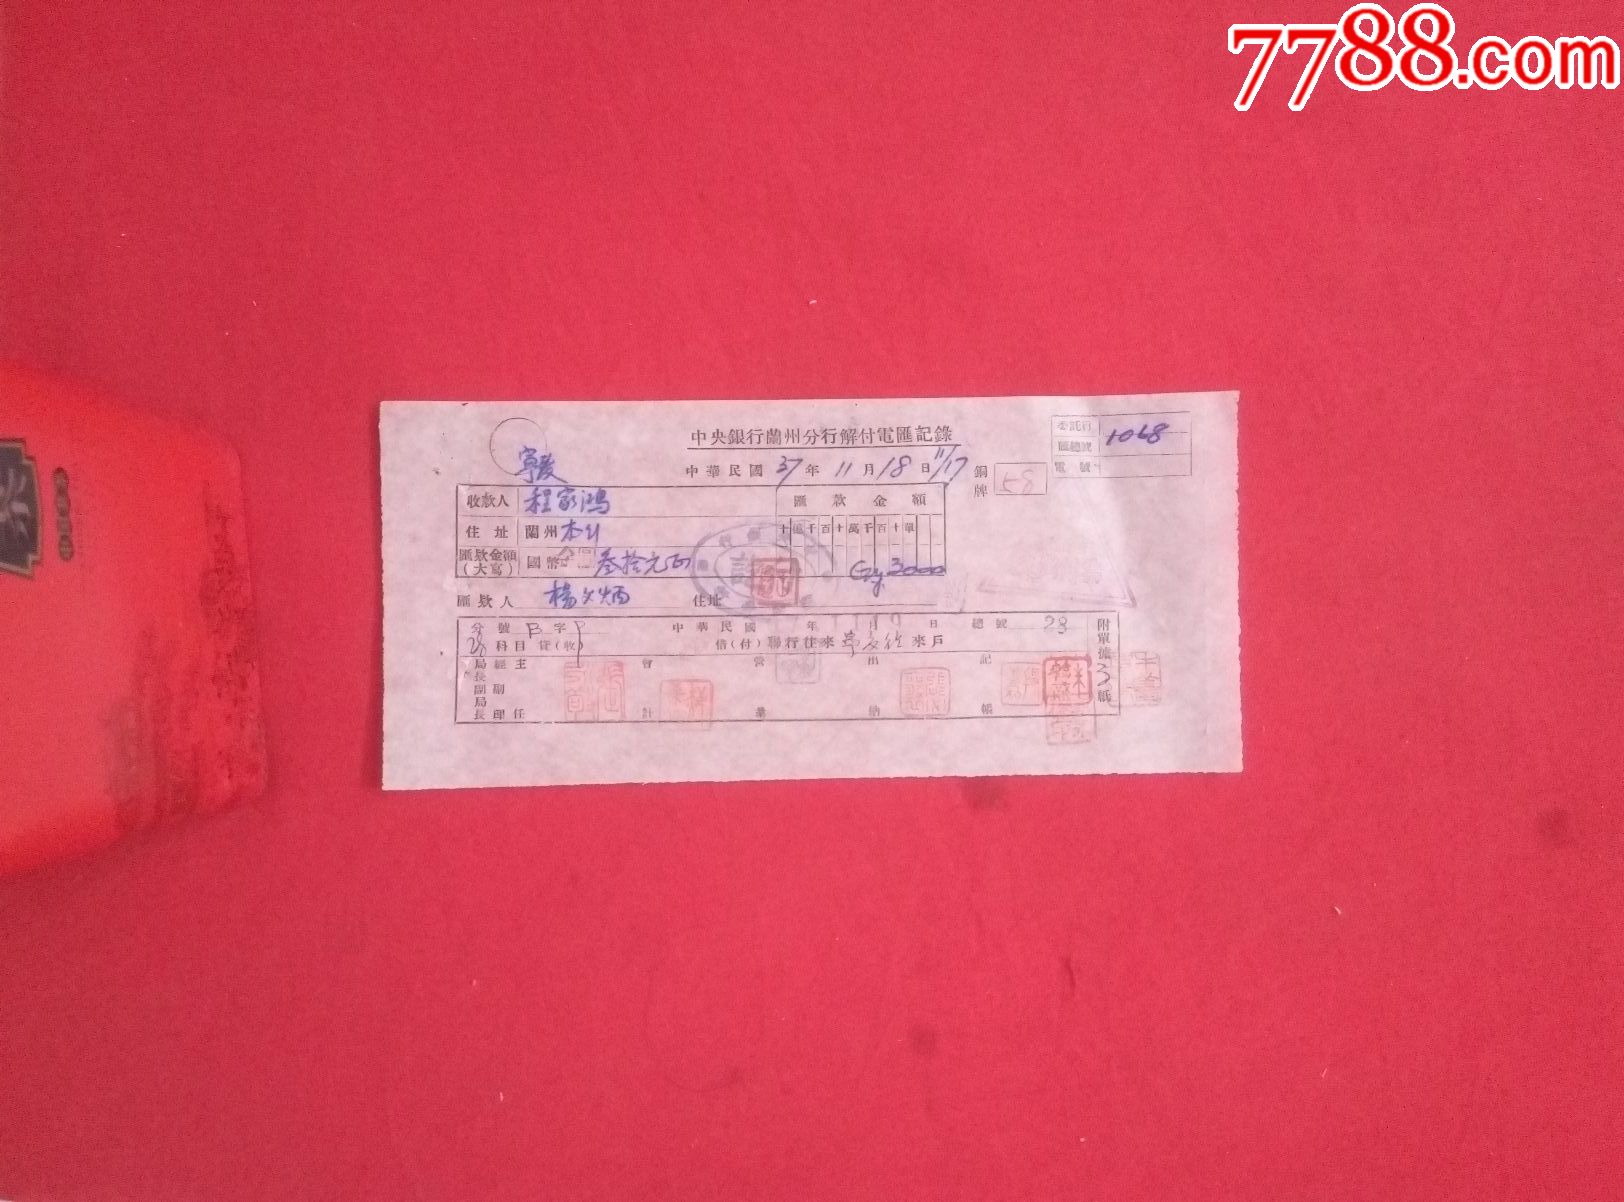 7788.com
中央銀行蘭州分行解付電匯記錄
委託行
匯總號 1068
電號
中華民國 37 年 11 月 18 日 11/17
銅牌 58
收款人 程家鴻
匯款金額
住址 蘭州 本行
十億千百十萬千百十單
匯款金額(大寫) 國幣 叁拾元正
Gy 3000
匯款人 住址
分號 B 字 中華民國 年 月 日 總號 28
科目 貸(收) 借(付) 聯行往來 來戶
附單據 3 紙
局長 經 主 會 營 出 記
副局長 副 理 任 計 業 納 帳